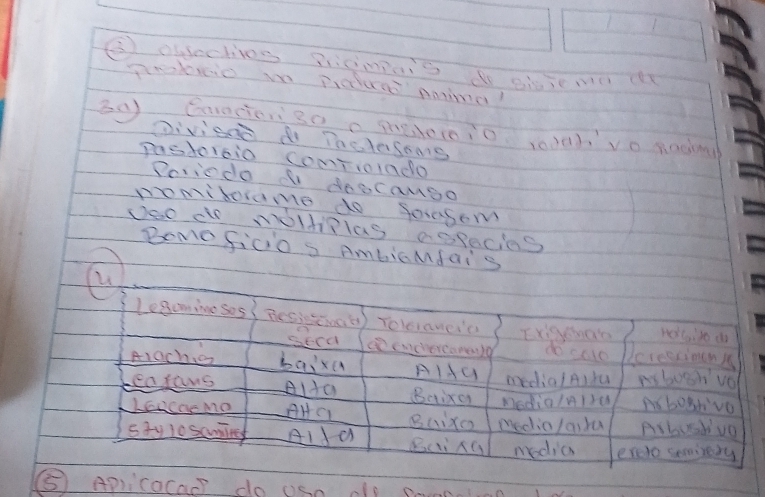 ③ objectivos Pricimpais do sistema de
Pastoreio na Producao Animal
3a) Caracteriza o pastoreio rotati'vo racional
Divisao de Pastagens
Pastoreio comtrolado
Periodo de descamso
momitoramo de foragem
Uso de moltiplas espècias
Bemo ficios AmbicMtais
④
Legominoses Resistencia Seca Tolerancia ao encharcamento Exigencia do solo Habito de crescimento
Arachis baixa Alta media/Alta Arbostivo
Alta Baixa media/Alta Arbostivo
Leocaema Alta Baixa media/alta Arbustivo
Stylosantes Alta Baixa media ereto semirety
⑤ Apricacao do uso de